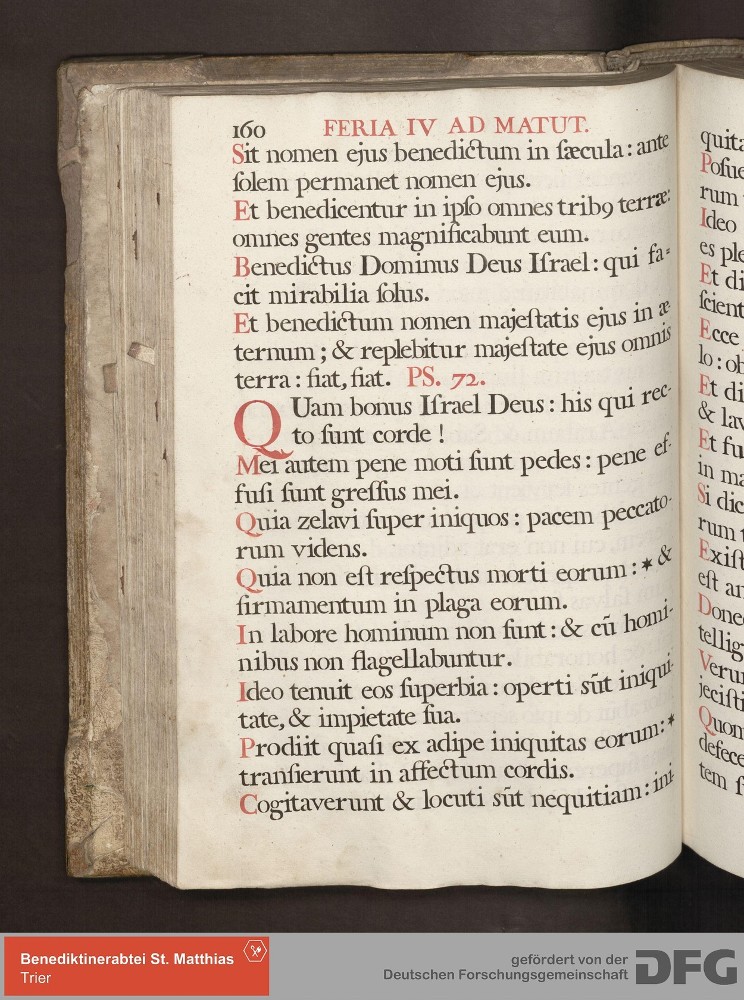 160 FERIA IV AD MATUT.
Sit nomen ejus benedictum in ſæcula : ante
ſolem permanet nomen ejus.
Et benedicentur in ipſo omnes tribꝰ terræ:
omnes gentes magnificabunt eum.
Benedictus Dominus Deus Iſrael : qui fa-
cit mirabilia ſolus.
Et benedictum nomen majeſtatis ejus in æ-
ternum ; & replebitur majeſtate ejus omnis
terra : fiat, fiat. PS. 72.
QUam bonus Iſrael Deus : his qui rec-
to ſunt corde !
Mei autem pene moti ſunt pedes : pene ef-
fuſi ſunt greſſus mei.
Quia zelavi ſuper iniquos : pacem peccato-
rum videns.
Quia non eſt reſpectus morti eorum : * &
firmamentum in plaga eorum.
In labore hominum non ſunt : & cū homi-
nibus non flagellabuntur.
Ideo tenuit eos ſuperbia : operti sūt iniqui-
tate, & impietate ſua.
Prodiit quaſi ex adipe iniquitas eorum : *
tranſierunt in affectum cordis.
Cogitaverunt & locuti sūt nequitiam : ini-
quita
Poſue
rum
Ideo
es ple
Et di
ſcient
Ecce
lo : ob
Et di
& lav
Et fu
in ma
Si dic
rum t
Exiſt
eſt an
Donec
tellig
Verum
jeciſti
Quom
defece
tem ſ
Benediktinerabtei St. Matthias
Trier
gefördert von der
Deutschen Forschungsgemeinschaft
DFG